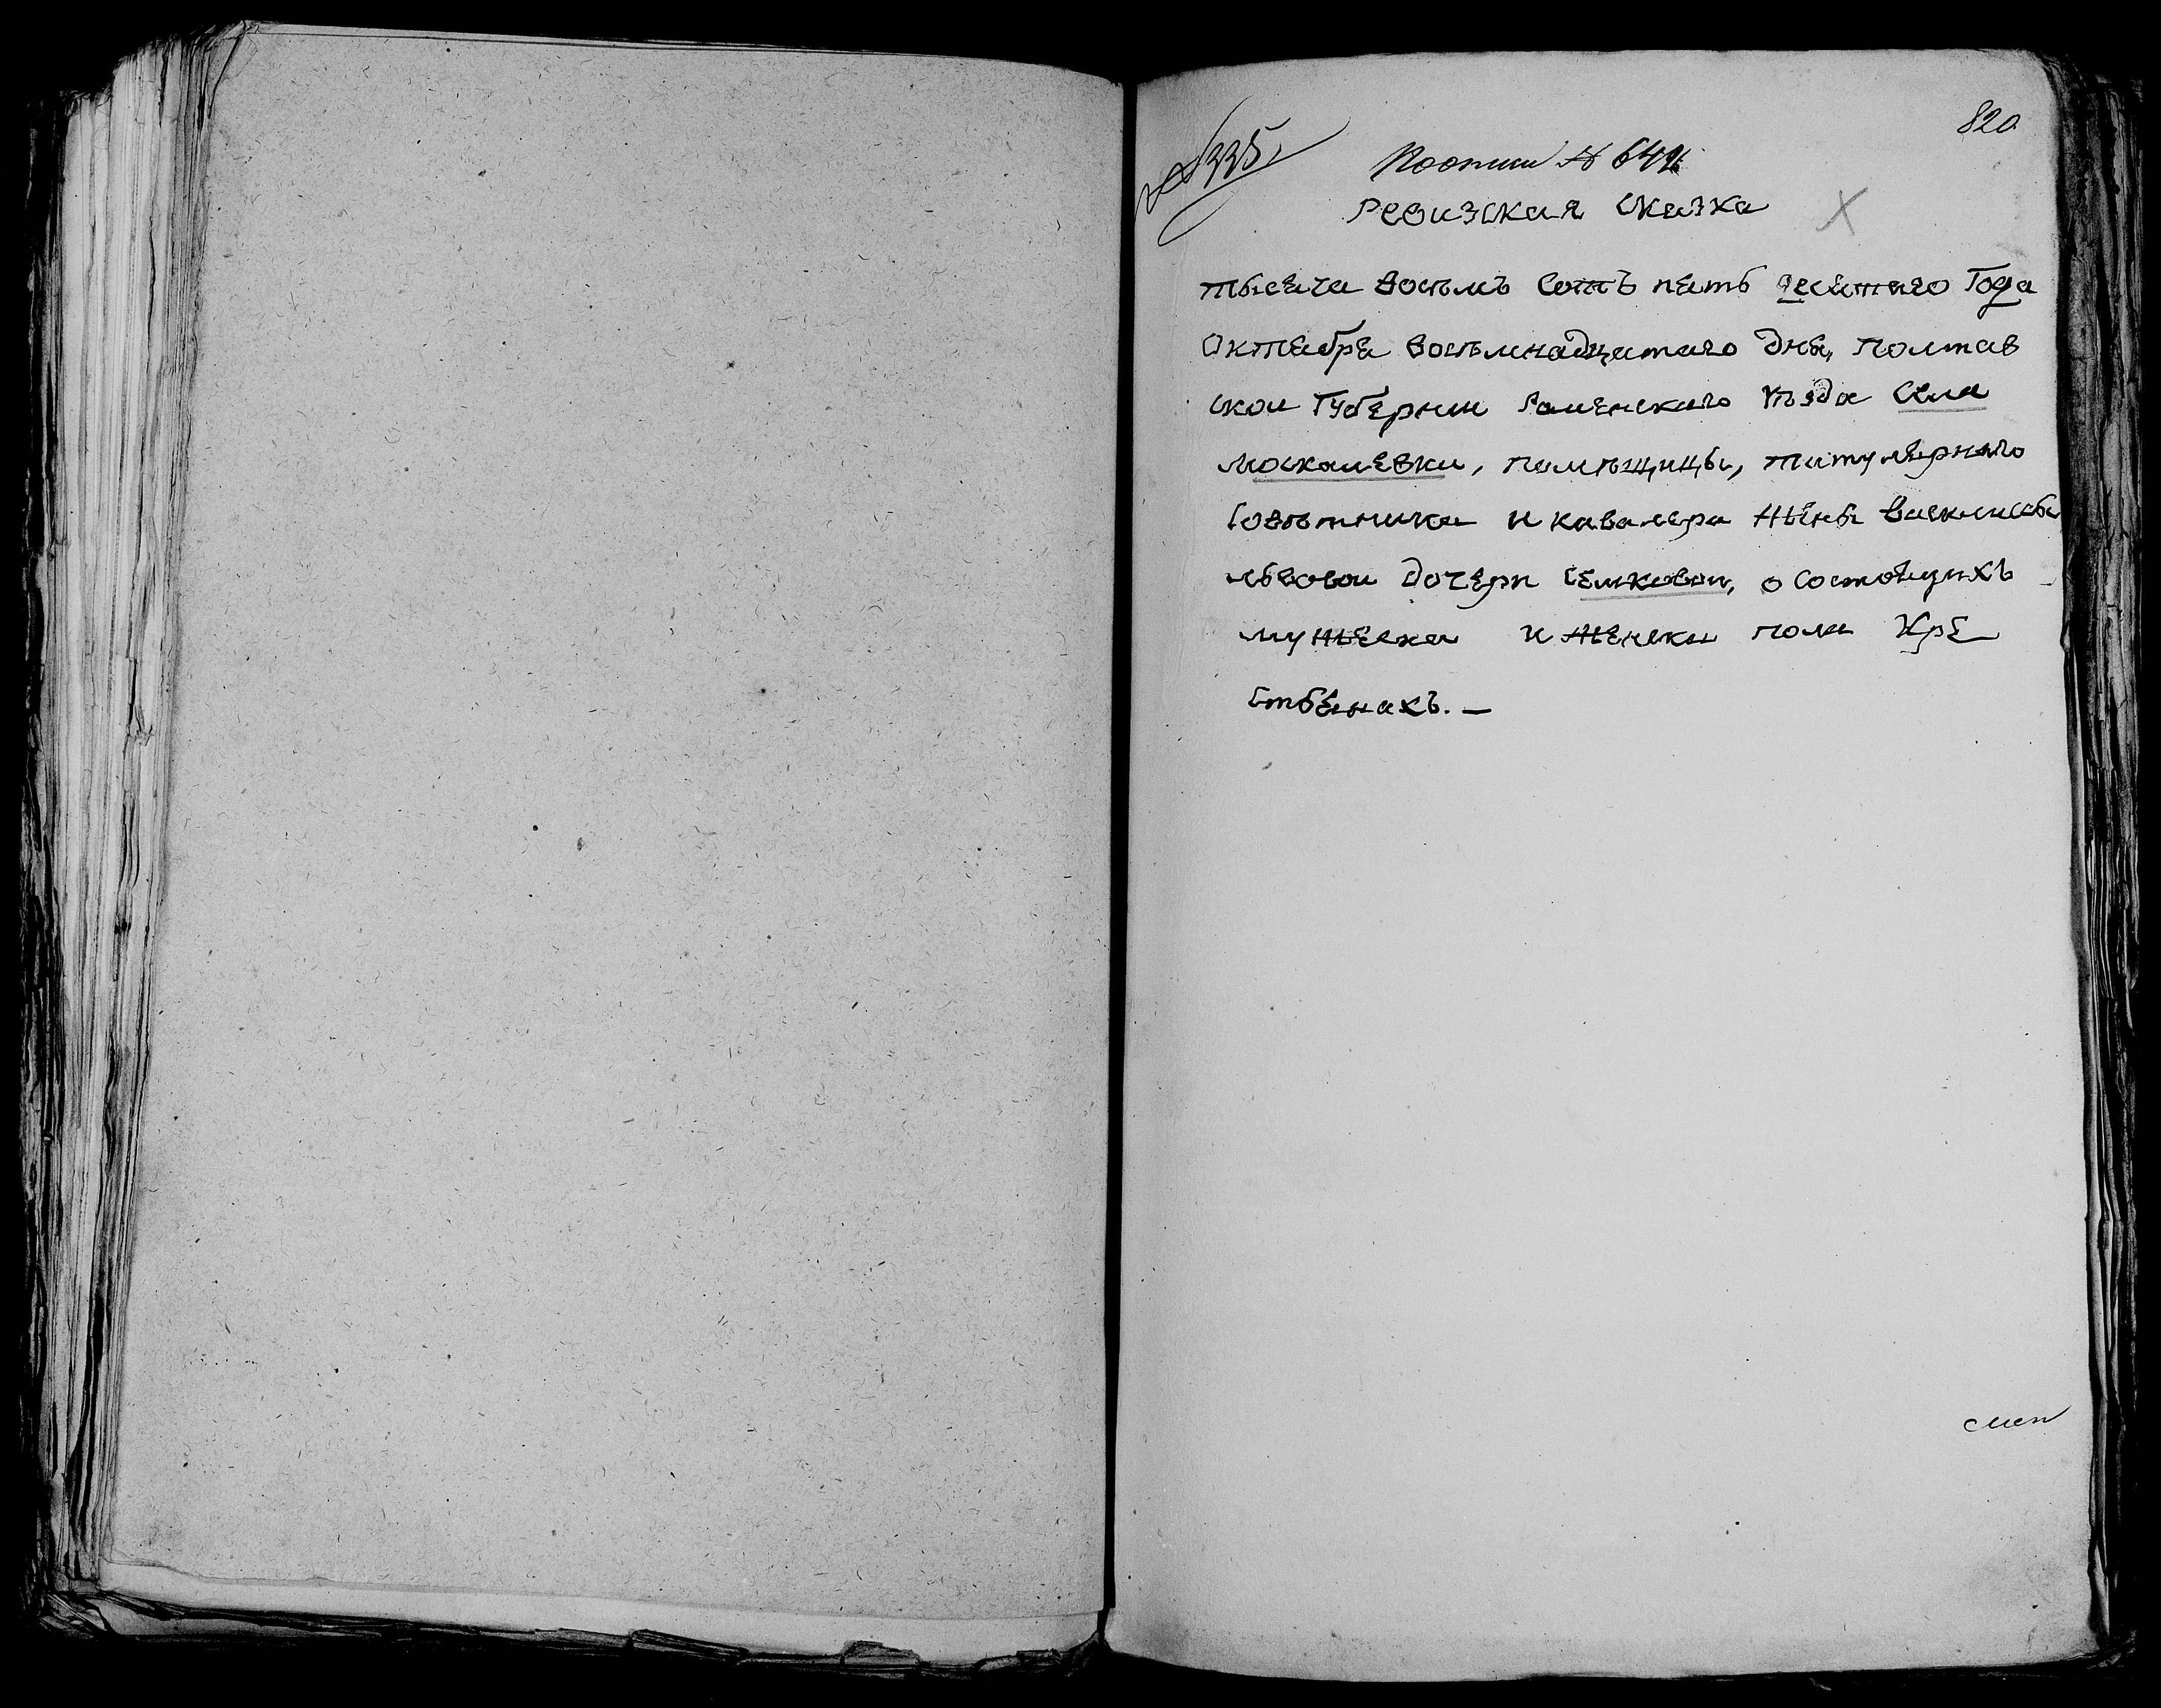 820
№ 335.
По описи № 642
Ревизская сказка
тысеча восьмъ сотъ пять десятаго Года
Октебре восьмнадцатаго дня, Полтав
ской Губернии Роменского уѣзда Села
москалевки, помѣщицы, титулярного
Совѣтника и кавалера жены василисы
львовой дочери Семковой, о состоящихъ
мужеска и женска пола Кре
стьянахъ. —